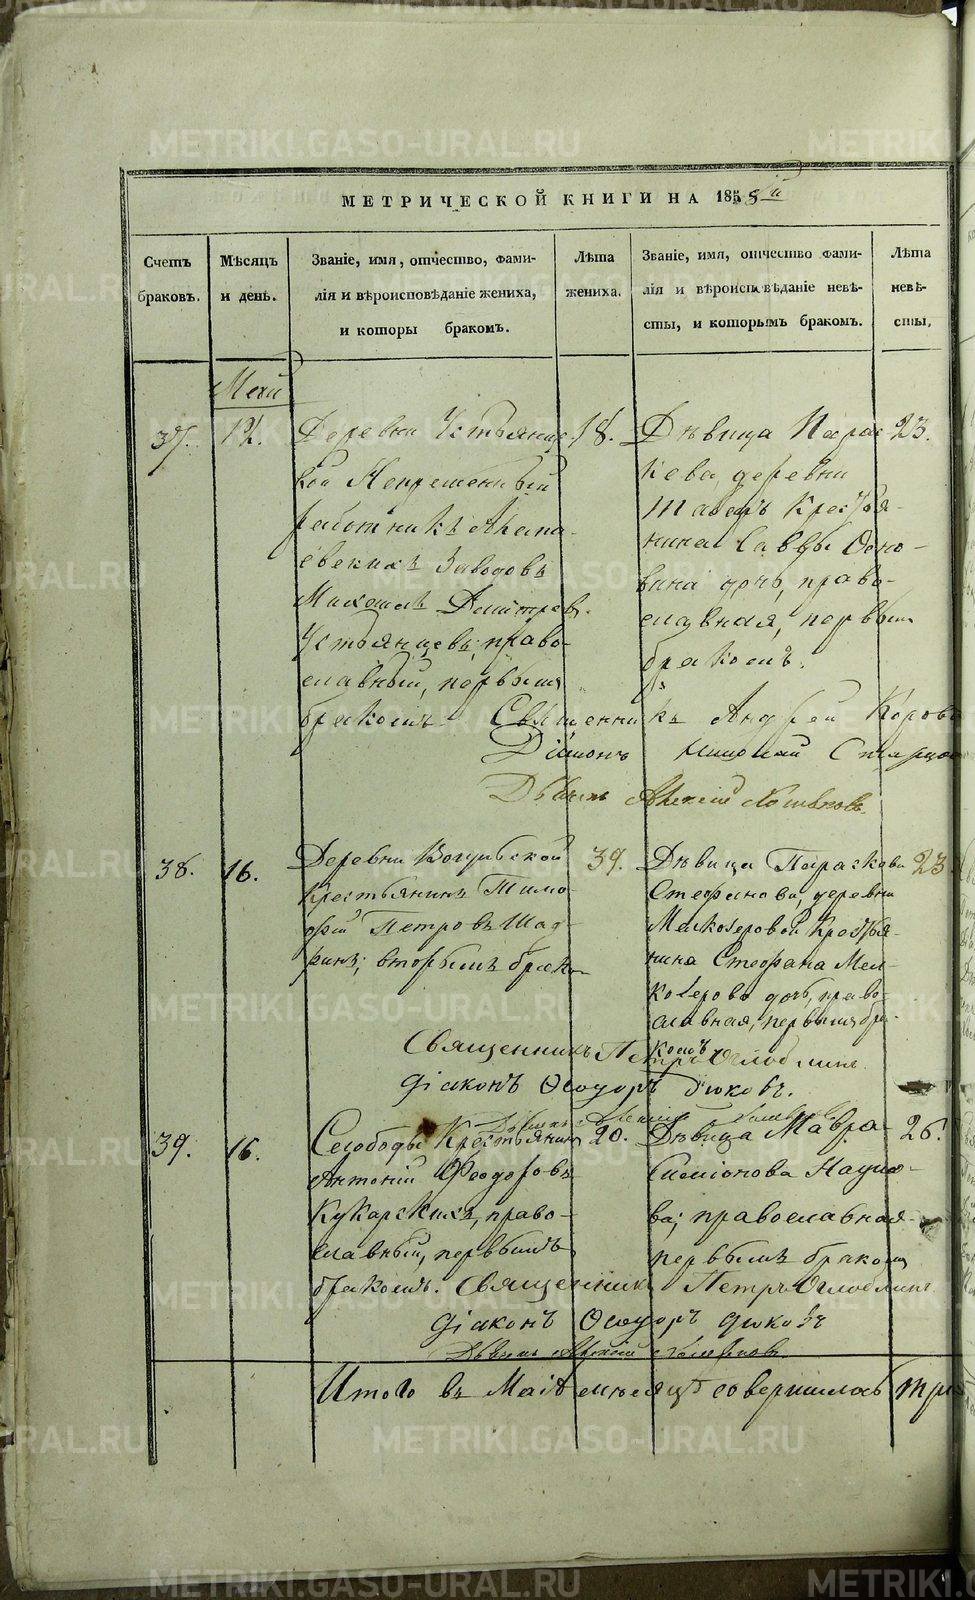 МЕТРИЧЕСКОЙ КНИГИ НА 1858й
Счетъ
браковъ.
Мѣсяцъ
и день.
Званіе, имя, отчество, фами-
лія и вѣроисповѣданіе жениха,
и которы бракомъ.
Лѣта
жениха.
Званіе, имя, отчество фами-
лія и вѣроисповѣданіе невѣ-
сты, и которымъ бракомъ.
Лѣта
невѣ-
сты.
Май
37.
12.
Деревни Устьянце-
вой Непременный
работникъ Алапа-
евскихъ Заводовъ
Михаилъ Дмитріев.
Устьянцевъ, право-
славный, первымъ
бракомъ
18.
Дѣвица Парас
кева, деревни
крестья-
нина Саввы
дочь, право-
славная, первымъ
бракомъ.
23.
Священникъ Андрей
Діаконъ Николай
Дьячекъ Алексій
38.
16.
Деревни Вогульской
Крестьянинъ Тимо-
фей Петровъ Шад-
ринъ, вторымъ брако
39.
Дѣвица Параскева
Стефанова, деревни
Мелкозеровой Крестья-
нина Стефана Мел-
козерова дочь, право-
славная, первымъ бра-
комъ
23
Священникъ Петръ Оглоблинъ
діаконъ Ѳеодоръ
39.
16.
Слободы Крестьянин
Антоній Феодоровъ
Кукарскихъ, право-
славный, первымъ
бракомъ.
20.
Дѣвица Мавра
Симіонова Наумо-
ва; православная
первымъ бракомъ
26.
Священникъ Петръ Оглоблинъ
діаконъ Ѳеодоръ
Дьячекъ Алексій
Итого въ Маіѣ мѣсяцѣ совершилось три
METRIKI.GASO-URAL.RU